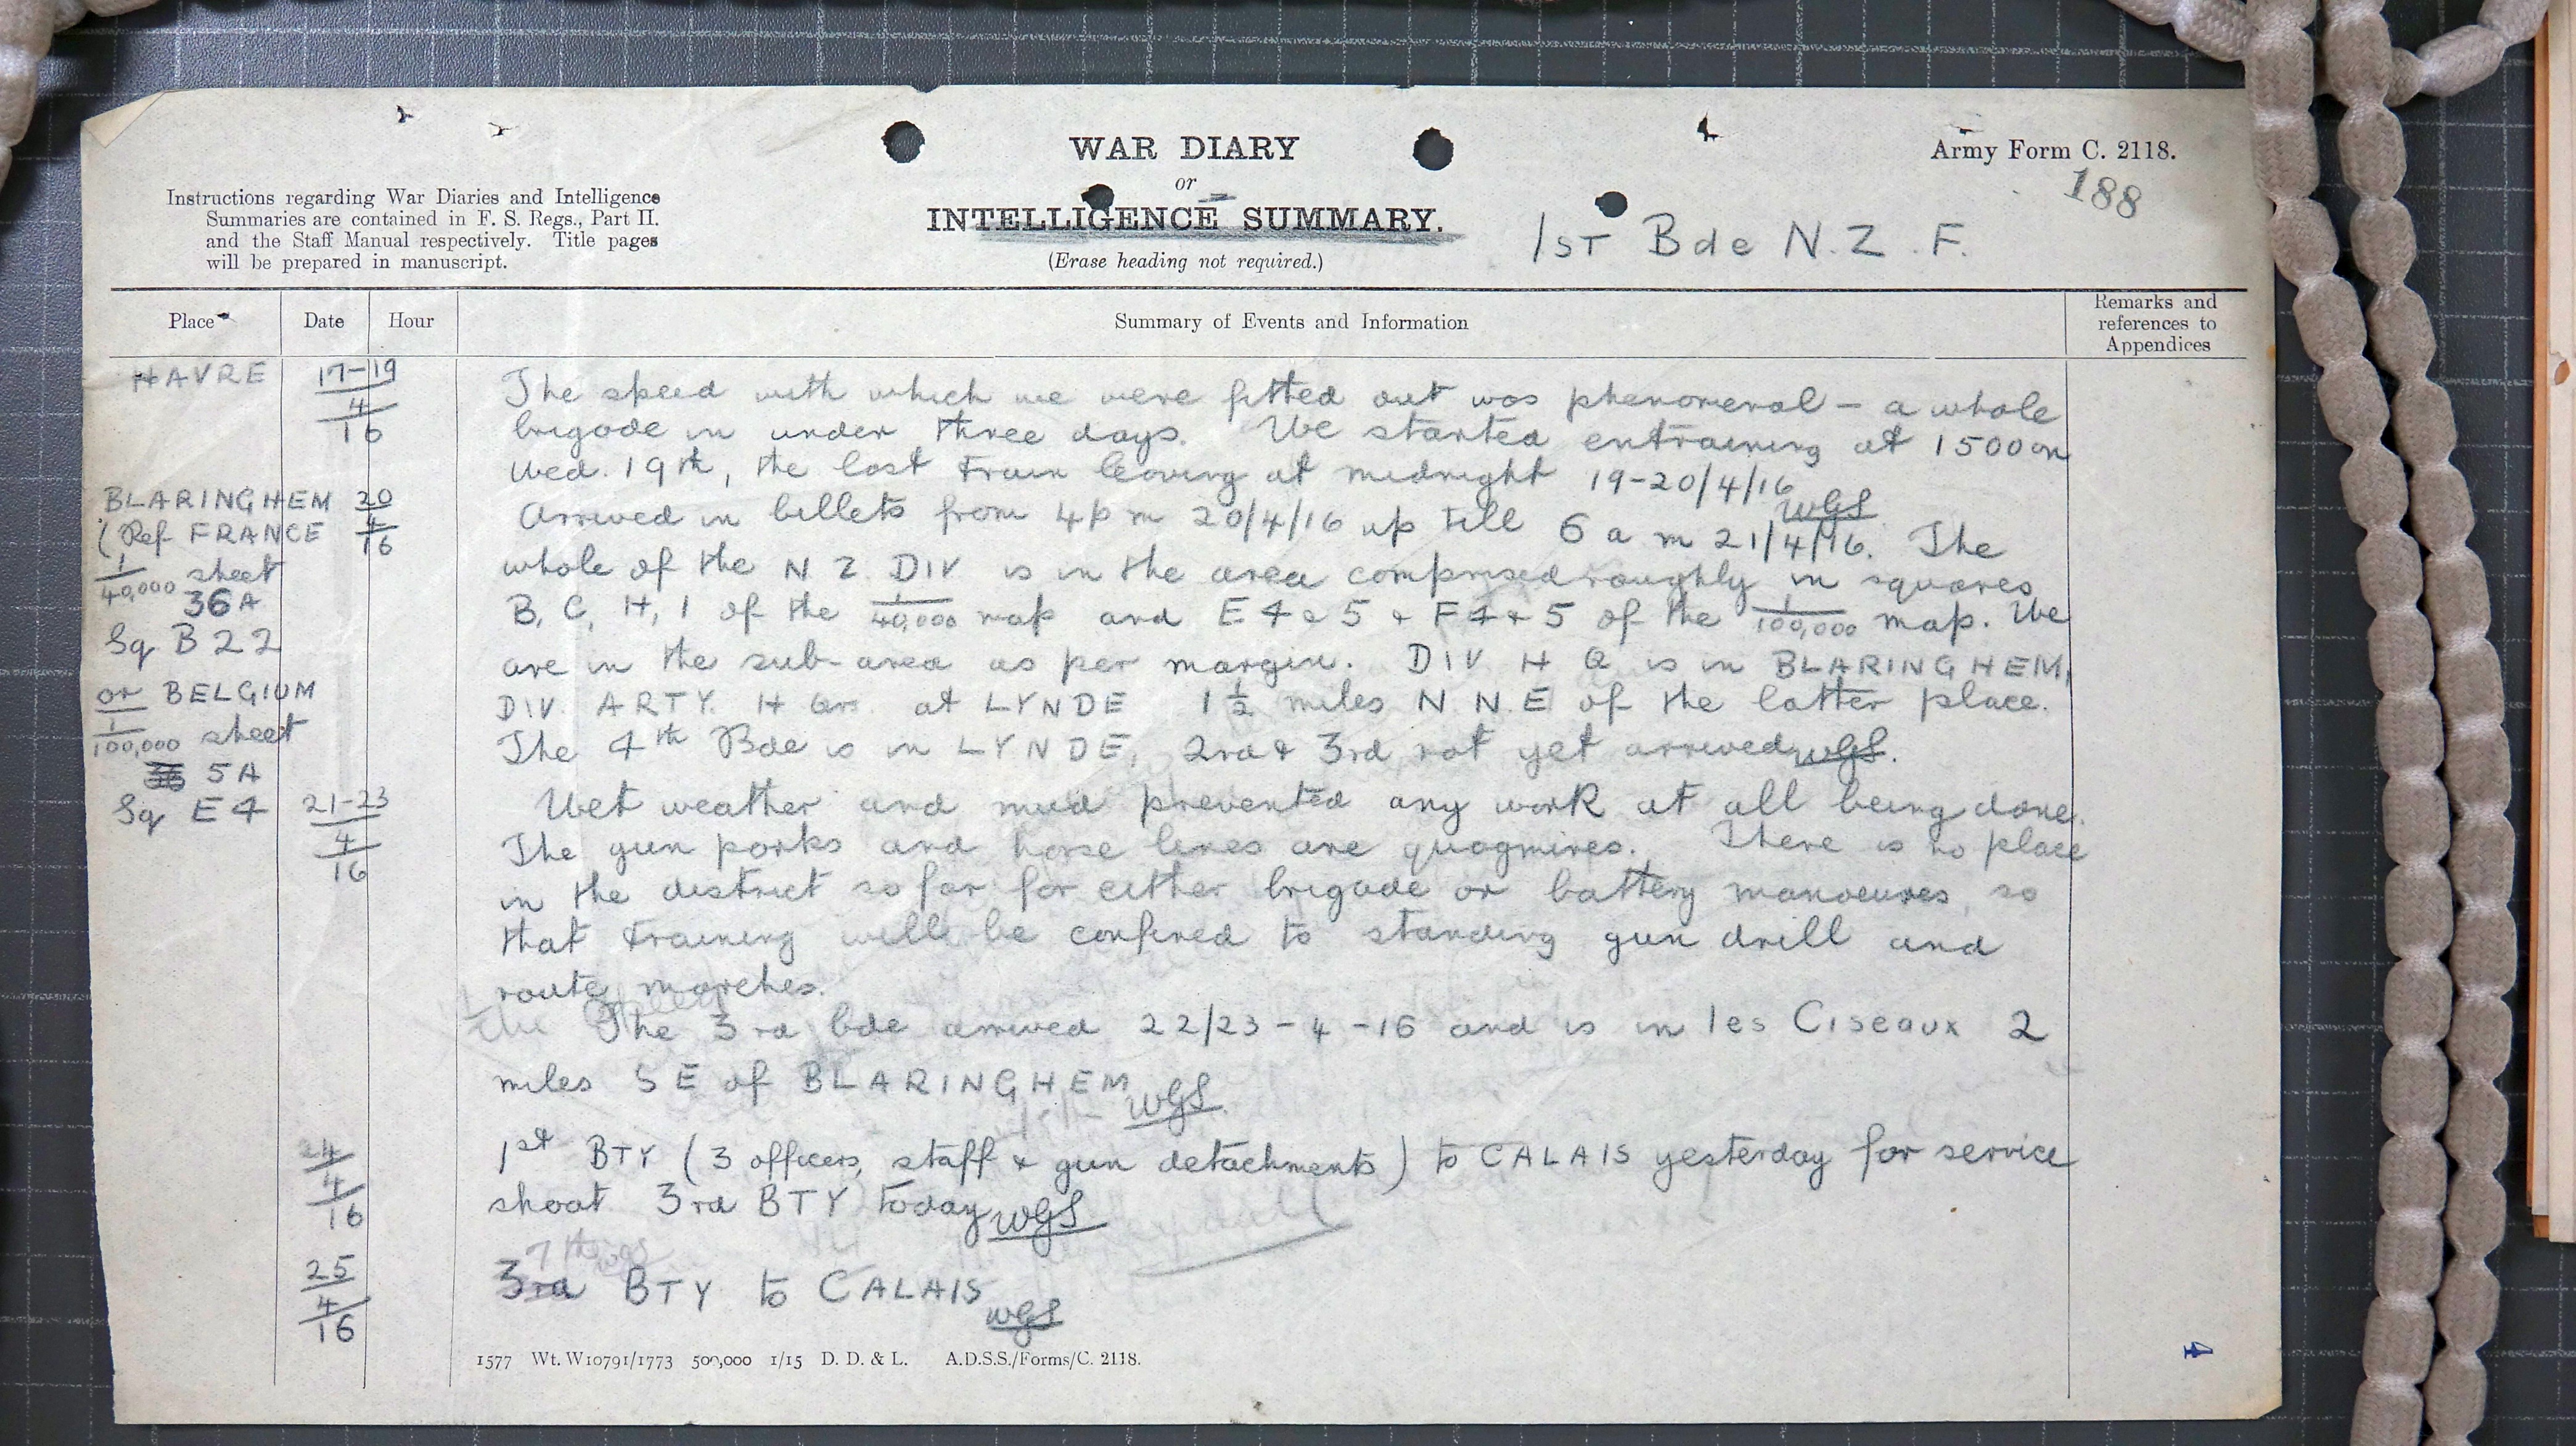 WAR DIARY
or
INTELLIGENCE SUMMARY.
(Erase heading not required.)
Army Form C. 2118.
188
Instructions regarding War Diaries and Intelligence
Summaries are contained in F. S. Regs., Part II.
and the Staff Manual respectively. Title pages
will be prepared in manuscript.
1ST Bde N.Z.F.
Place Date Hour Summary of Events and Information Remarks and references to Appendices
HAVRE 17-19/4/16
The speed with which we were fitted out was phenomenal – a whole
brigade in under three days. We started entraining at 1500 on
Wed. 19th, the last train leaving at midnight 19-20/4/16
WGS
BLARINGHEM 20/4/16
(Ref FRANCE
1/40,000 sheet
36A
Sq B 22
or BELGIUM
1/100,000 sheet
36 5A
Sq E4
Arrived in billets from 4 p m 20/4/16 up till 6 a m 21/4/16. The
whole of the N Z DIV is in the area comprised roughly in squares
B, C, H, I of the 1/40,000 map and E 4 & 5 & F 4 & 5 of the 1/100,000 map. We
are in the sub-area as per margin. DIV H Q is in BLARINGHEM,
DIV. ARTY. H Qrs. at LYNDE 1½ miles N N E of the latter place.
The 4th Bde is in LYNDE, 2nd & 3rd not yet arrived WGS.
21-23/4/16
Wet weather and mud prevented any work at all being done.
The gun parks and horse lines are quagmires. There is no place
in the district so far for either brigade or battery manoeuvres, so
that training will be confined to standing gun drill and
route marches.
The 3rd bde arrived 22/23-4-16 and is in les Ciseaux 2
miles S E of BLARINGHEM WGS
24/4/16
1st BTY (3 officers, staff & gun detachments) to CALAIS yesterday for service
shoot. 3rd BTY today WGS
25/4/16
7th WGS
3rd BTY to CALAIS
WGS
1577 Wt. W10791/1773 500,000 1/15 D. D. & L. A.D.S.S./Forms/C. 2118.